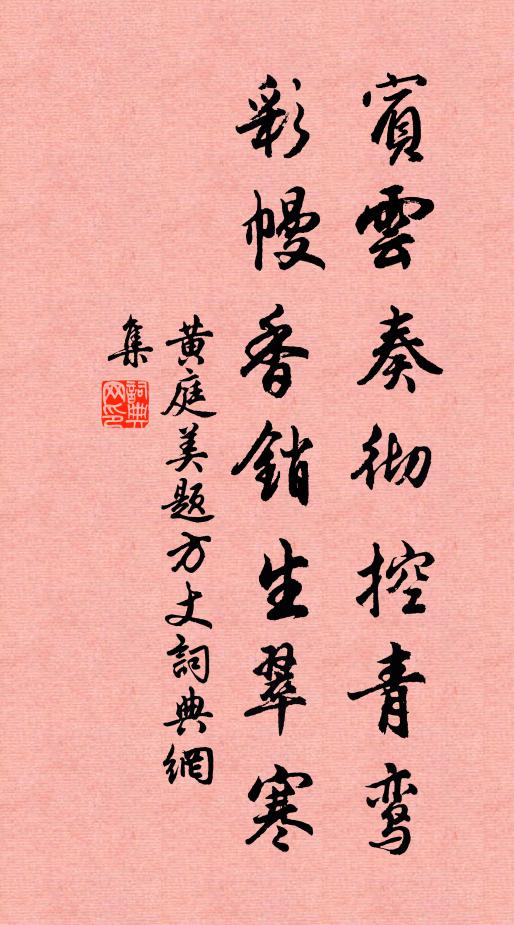 賓雲奏彻控青鸾
彩幔香銷生翠寒
黄庭美题方丈詞典網
集
詞典網印